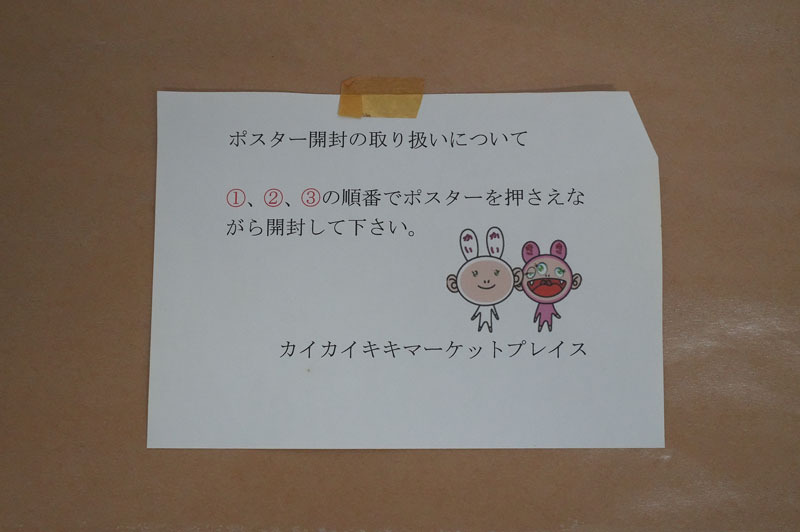 ポスター開封の取り扱いについて
①、②、③の順番でポスターを押さえな
がら開封して下さい。
カイカイキキマーケットプレイス